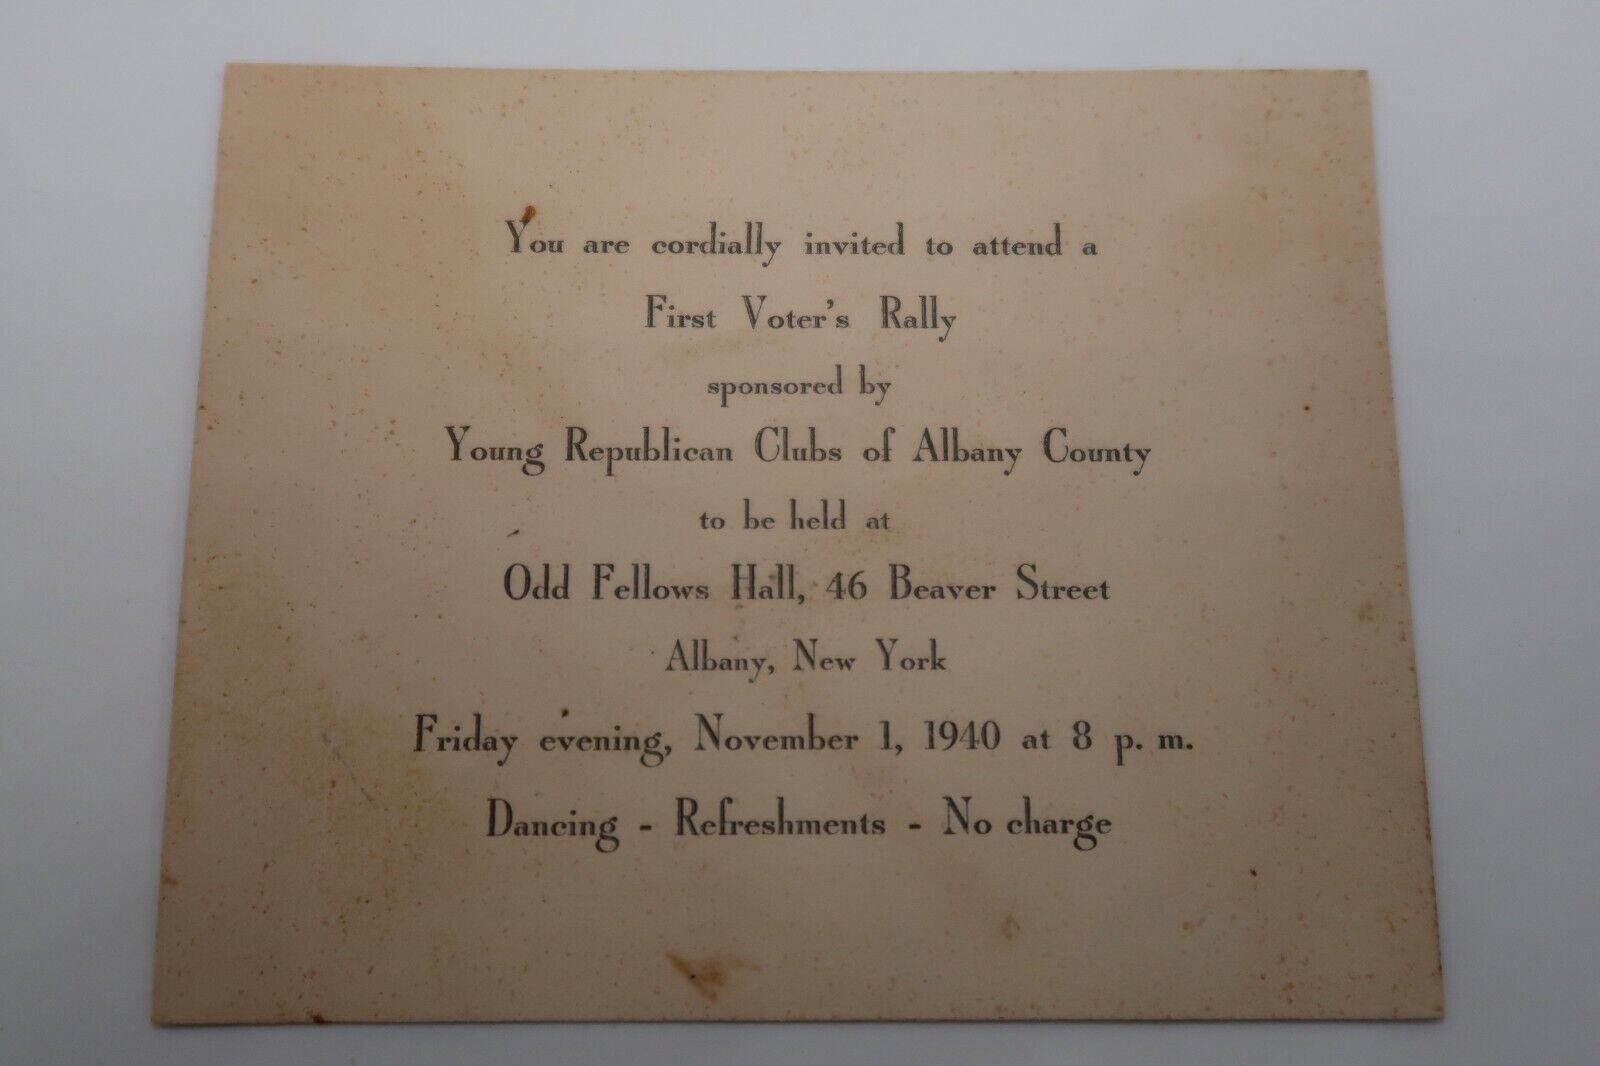 You are cordially invited to attend a
First Voter's Rally
sponsored by
Young Republican Clubs of Albany County
to be held at
Odd Fellows Hall, 46 Beaver Street
Albany, New York
Friday evening, November 1, 1940 at 8 p. m.
Dancing - Refreshments - No charge